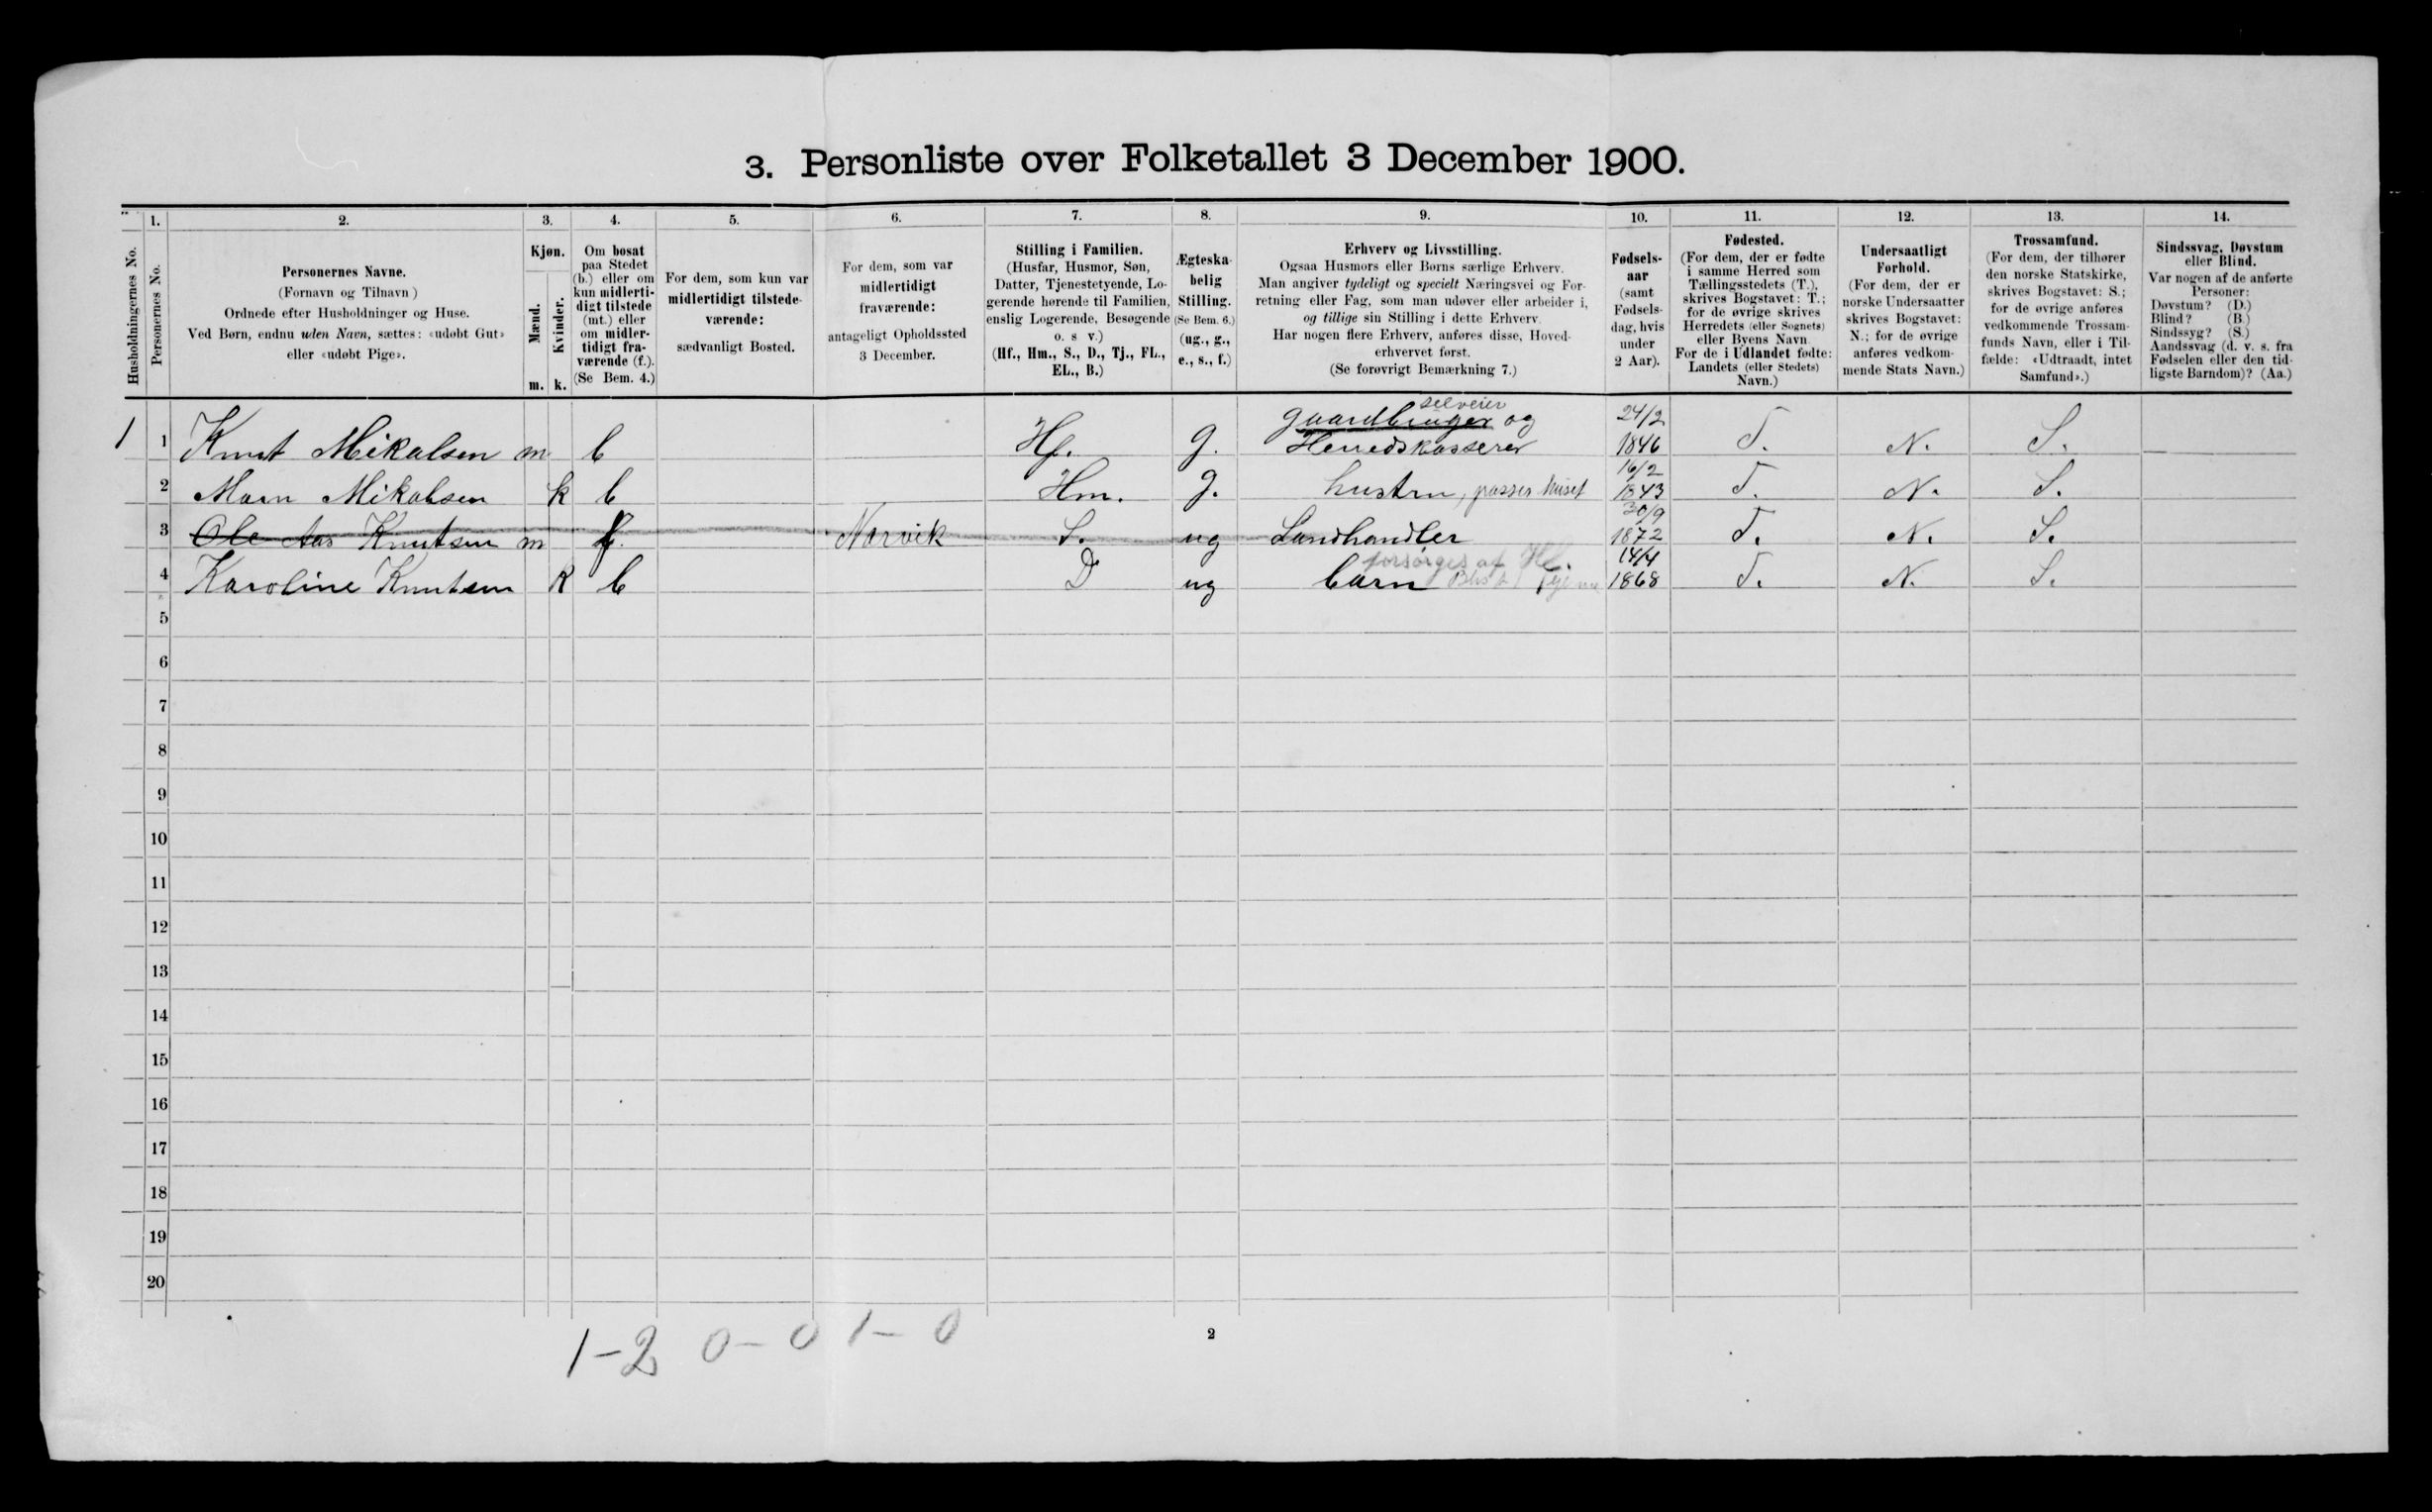 3. Personliste over Folketallet 3 December 1900.
Husholdningernes No.
1.
Personernes No.
2.
Personernes Navne.
(Fornavn og Tilnavn )
Ordnede efter Husholdninger og Huse.
Ved Børn, endnu uden Navn, sættes: «udøbt Gut»
eller «udøbt Pige».
3.
Kjøn.
Mænd.
Kvinder.
m. k.
4.
Om bosat
paa Stedet
(b.) eller om
kun midlerti-
digt tilstede
(mt.) eller
om midler-
tidigt fra-
værende (f.).
(Se Bem. 4.)
5.
For dem, som kun var
midlertidigt tilstede-
værende:
sædvanligt Bosted.
6.
For dem, som var
midlertidigt
fraværende:
antageligt Opholdssted
3 December.
7.
Stilling i Familien.
(Husfar, Husmor, Søn,
Datter, Tjenestetyende, Lo-
gerende hørende til Familien,
enslig Logerende, Besøgende
o. s v.)
(Hf., Hm., S., D., Tj., FL.,
EL., B.)
8.
Ægteska-
belig
Stilling.
(Se Bem. 6.)
(ug., g.,
e., s., f.)
9.
Erhverv og Livsstilling.
Ogsaa Husmors eller Børns særlige Erhverv.
Man angiver tydeligt og specielt Næringsvei og For-
retning eller Fag, som man udøver eller arbeider i,
og tillige sin Stilling i dette Erhverv.
Har nogen flere Erhverv, anføres disse, Hoved-
erhvervet først.
(Se forøvrigt Bemærkning 7.)
10.
Fødsels-
aar
(samt
Fødsels-
dag, hvis
under
2 Aar).
11.
Fødested.
(For dem, der er fødte
i samme Herred som
Tællingsstedets (T.),
skrives Bogstavet: T.;
for de øvrige skrives
Herredets (eller Sognets)
eller Byens Navn.
For de i Udlandet fødte:
Landets (eller Stedets)
Navn.)
12.
Undersaatligt
Forhold.
(For dem, der er
norske Undersaatter
skrives Bogstavet:
N.; for de øvrige
anføres vedkom-
mende Stats Navn.)
13.
Trossamfund.
(For dem, der tilhører
den norske Statskirke,
skrives Bogstavet: S.;
for de øvrige anføres
vedkommende Trossam-
funds Navn, eller i Til-
fælde: «Udtraadt, intet
Samfund».)
14.
Sindssvag, Døvstum
eller Blind.
Var nogen af de anførte
Personer:
Døvstum? (D.)
Blind? (B.)
Sindssyg? (S.)
Aandssvag (d. v. s. fra
Fødselen eller den tid-
ligste Barndom)? (Aa.)
selveier
gaardbruger og 24/2
1 1 Knut Mikalsen m b Hf. g. Herredskasserer 1846 T. N. S.
16/2
2 Marn Mikalsen k b Hm. g. hustru, passer huset 1843 T. N. S.
30/9
3 Ole Aas Knutsen m f. Narvik S. ug Landhandler 1872 T. N. S.
forsørges af Hf. 14/4
4 Karoline Knutsen k b D ug barn 1868 T. N. S.
5
6
7
8
9
10
11
12
13
14
15
16
17
18
19
20
1-2 0-0 1-0
2